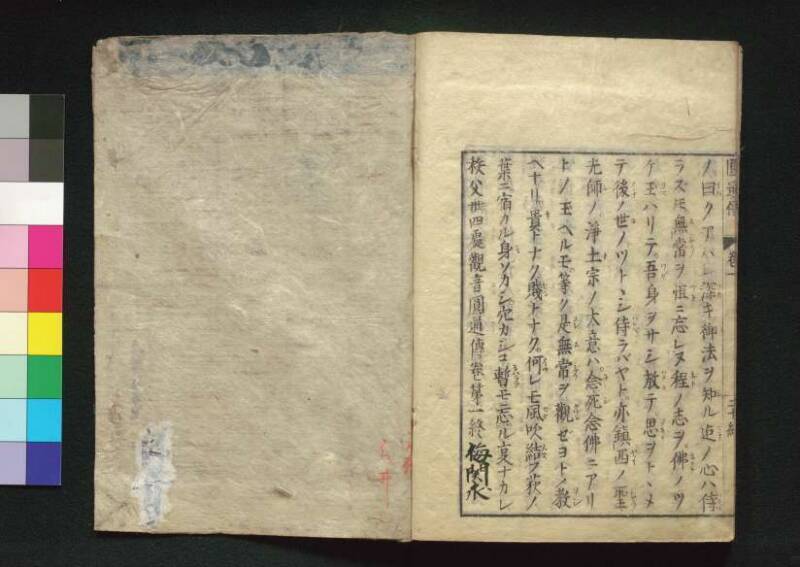 圓通傳 卷一 二十終
ノ曰クアハレ深キ御法ヲ知ル迠ノ心ハ侍
ラズモ無常ヲ恒ニ忘レヌ程ノ志ヲ佛ノツ
ケ玉ハリテ吾身ヲサシ放テ思ヲトヽメ
テ後ノ世ノツトメシ侍ラバヤト亦鎮西ノ聖
光師ノ淨土宗ノ大意ハ念死念佛ニアリ
トノ玉ヘルモ等ク是無常ヲ觀ゼヨトノ教
ヘナリ貴トナク賤トナク何レモ風吹結フ荻ノ
葉ニ宿カル身ソカシ穴カシコ暫モ忘ル叓ナカレ
秩父丗四處觀音圓通傳卷第一終